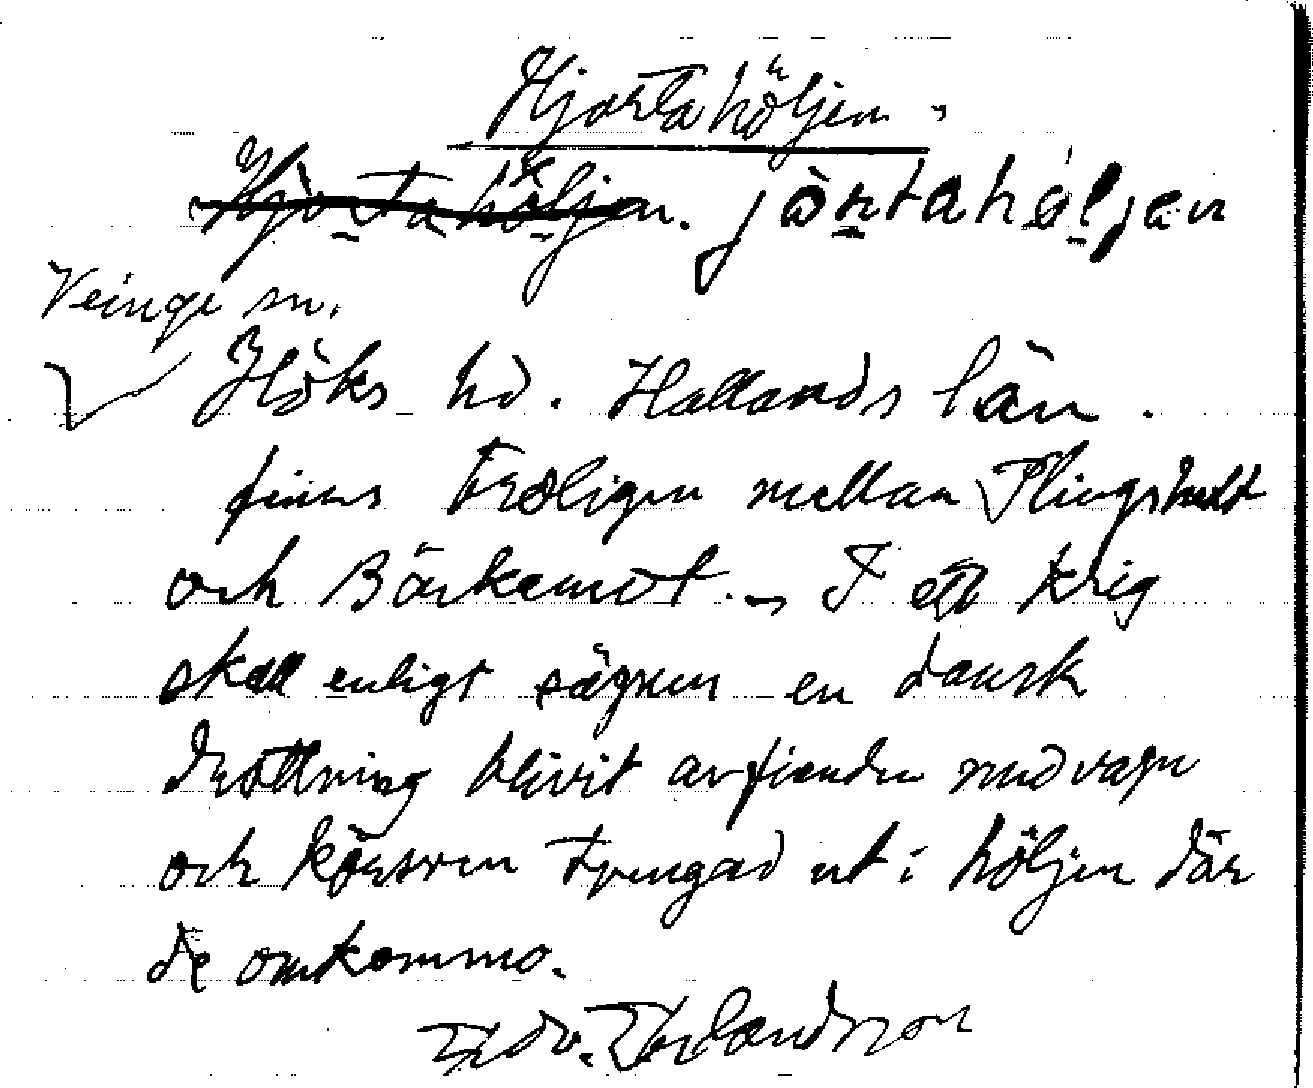 Hjortahöljen
Hjortahöljen. jòrtahöljen
Veinge sn.
Höks hd. Hallands län.
finns troligen mellan Plingshult
och Bärkemot. – I ett krig
skall enligt sägnen en dansk
drottning blivit av fienden med vagn
och körsven tvungad ut i höljen där
de omkommo.
Edv. Erlandsson